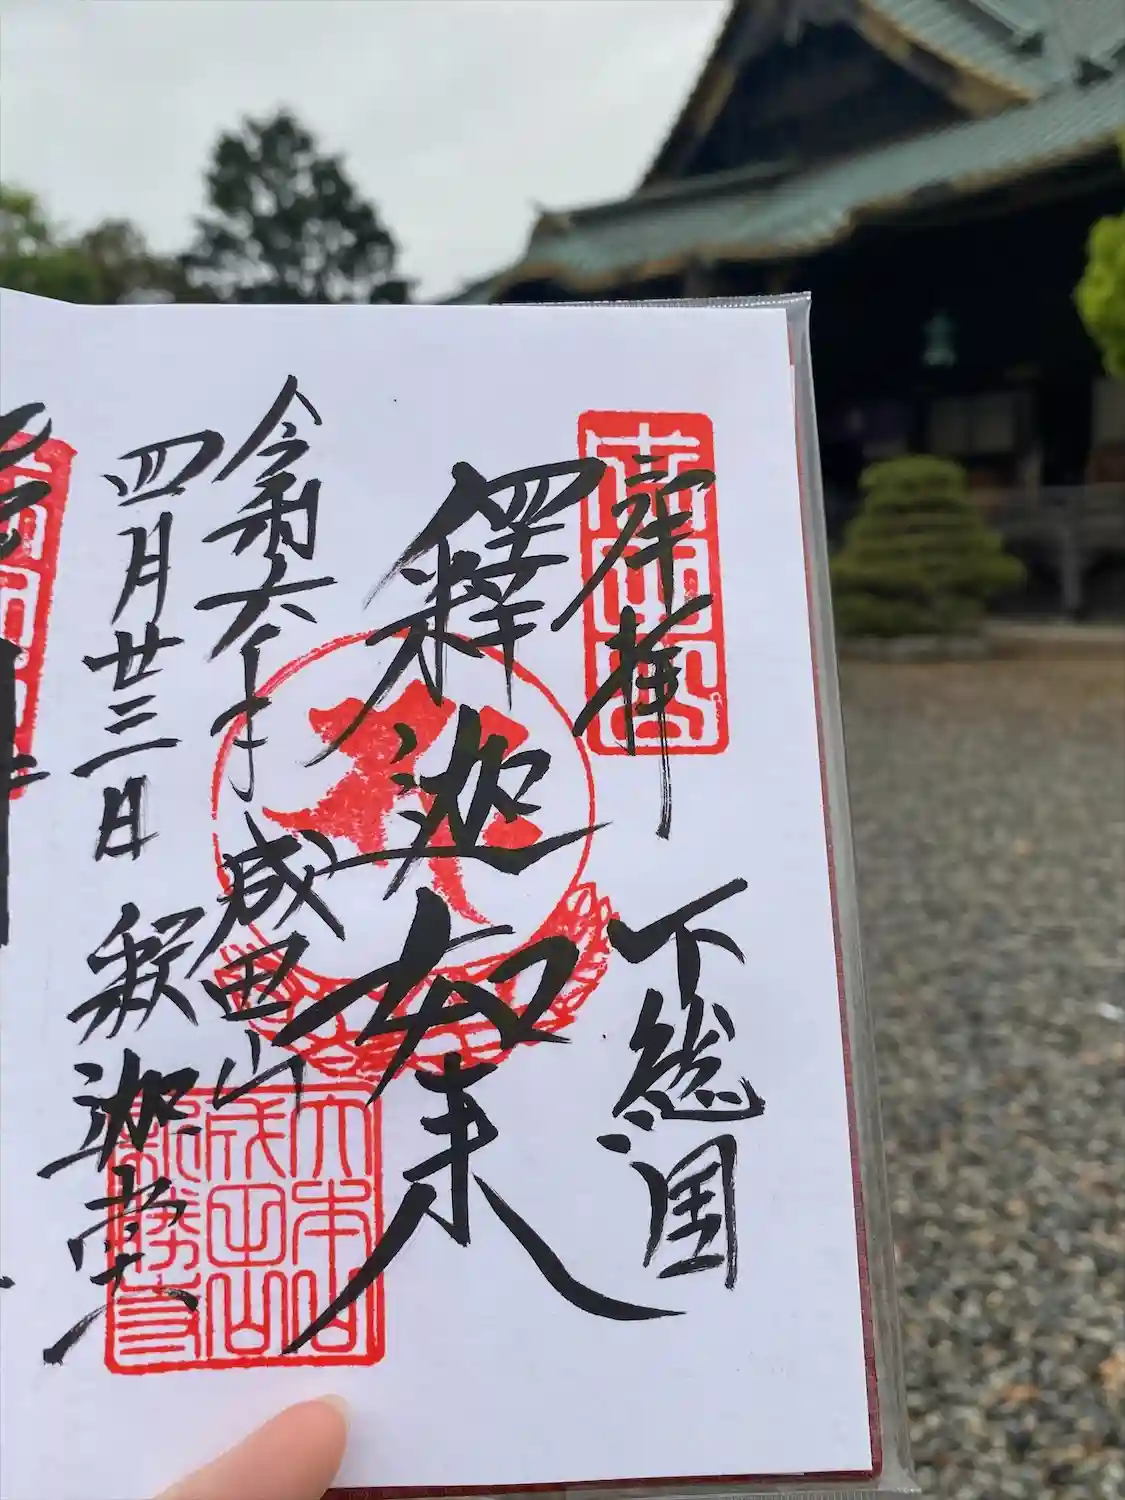 奉拝
下総国
釋迦如来
令和六年
成田山
四月廿三日
釈迦堂
大本山
成田山
新勝寺